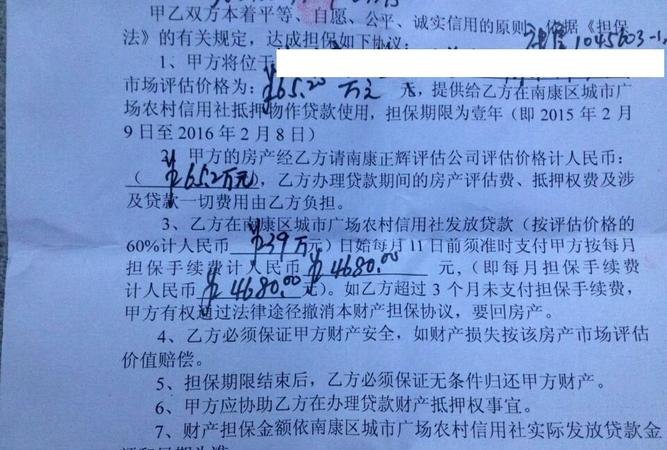 甲乙双方本着平等、自愿、公平、诚实信用的原则,依据《担保
法》的有关规定,达成担保如下协议:
1045603-1
1、甲方将位于
市场评估价格为:¥65.20万元 元,提供给乙方在南康区城市广
场农村信用社抵押物作贷款使用,担保期限为壹年(即 2015 年 2 月
9 日至 2016 年 2 月 8 日)
2、甲方的房产经乙方请南康正辉评估公司评估价格计人民币:
(¥65.2万元),乙方办理贷款期间的房产评估费、抵押权费及涉
及贷款一切费用由乙方负担。
3、乙方在南康区城市广场农村信用社发放贷款(按评估价格的
60%计人民币 ¥39万元)日始每月 11 日前须准时支付甲方按每月
担保手续费计人民币 ¥4680.00 元,(即每月担保手续费
计人民币 ¥4680.00 元)。如乙方超过 3 个月未支付担保手续费,
甲方有权通过法律途径撤消本财产担保协议,要回房产。
4、乙方必须保证甲方财产安全,如财产损失按该房产市场评估
价值赔偿。
5、担保期限结束后,乙方必须保证无条件归还甲方财产。
6、甲方应协助乙方在办理贷款财产抵押权事宜。
7、财产担保金额依南康区城市广场农村信用社实际发放贷款金